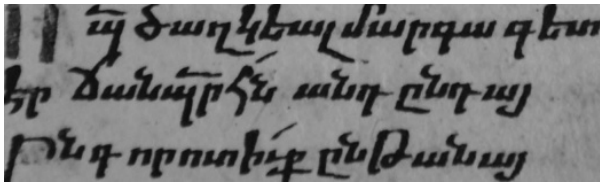 պ ծաղկեալ մարգագետ
էր ճանապրհն անդ ընդ այ
Ընդ որ ոտիւք ընթանայ